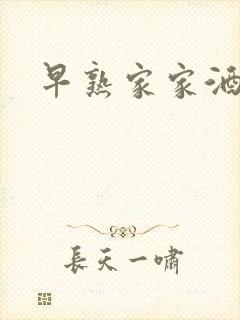 早熟家家酒
長天一嘯